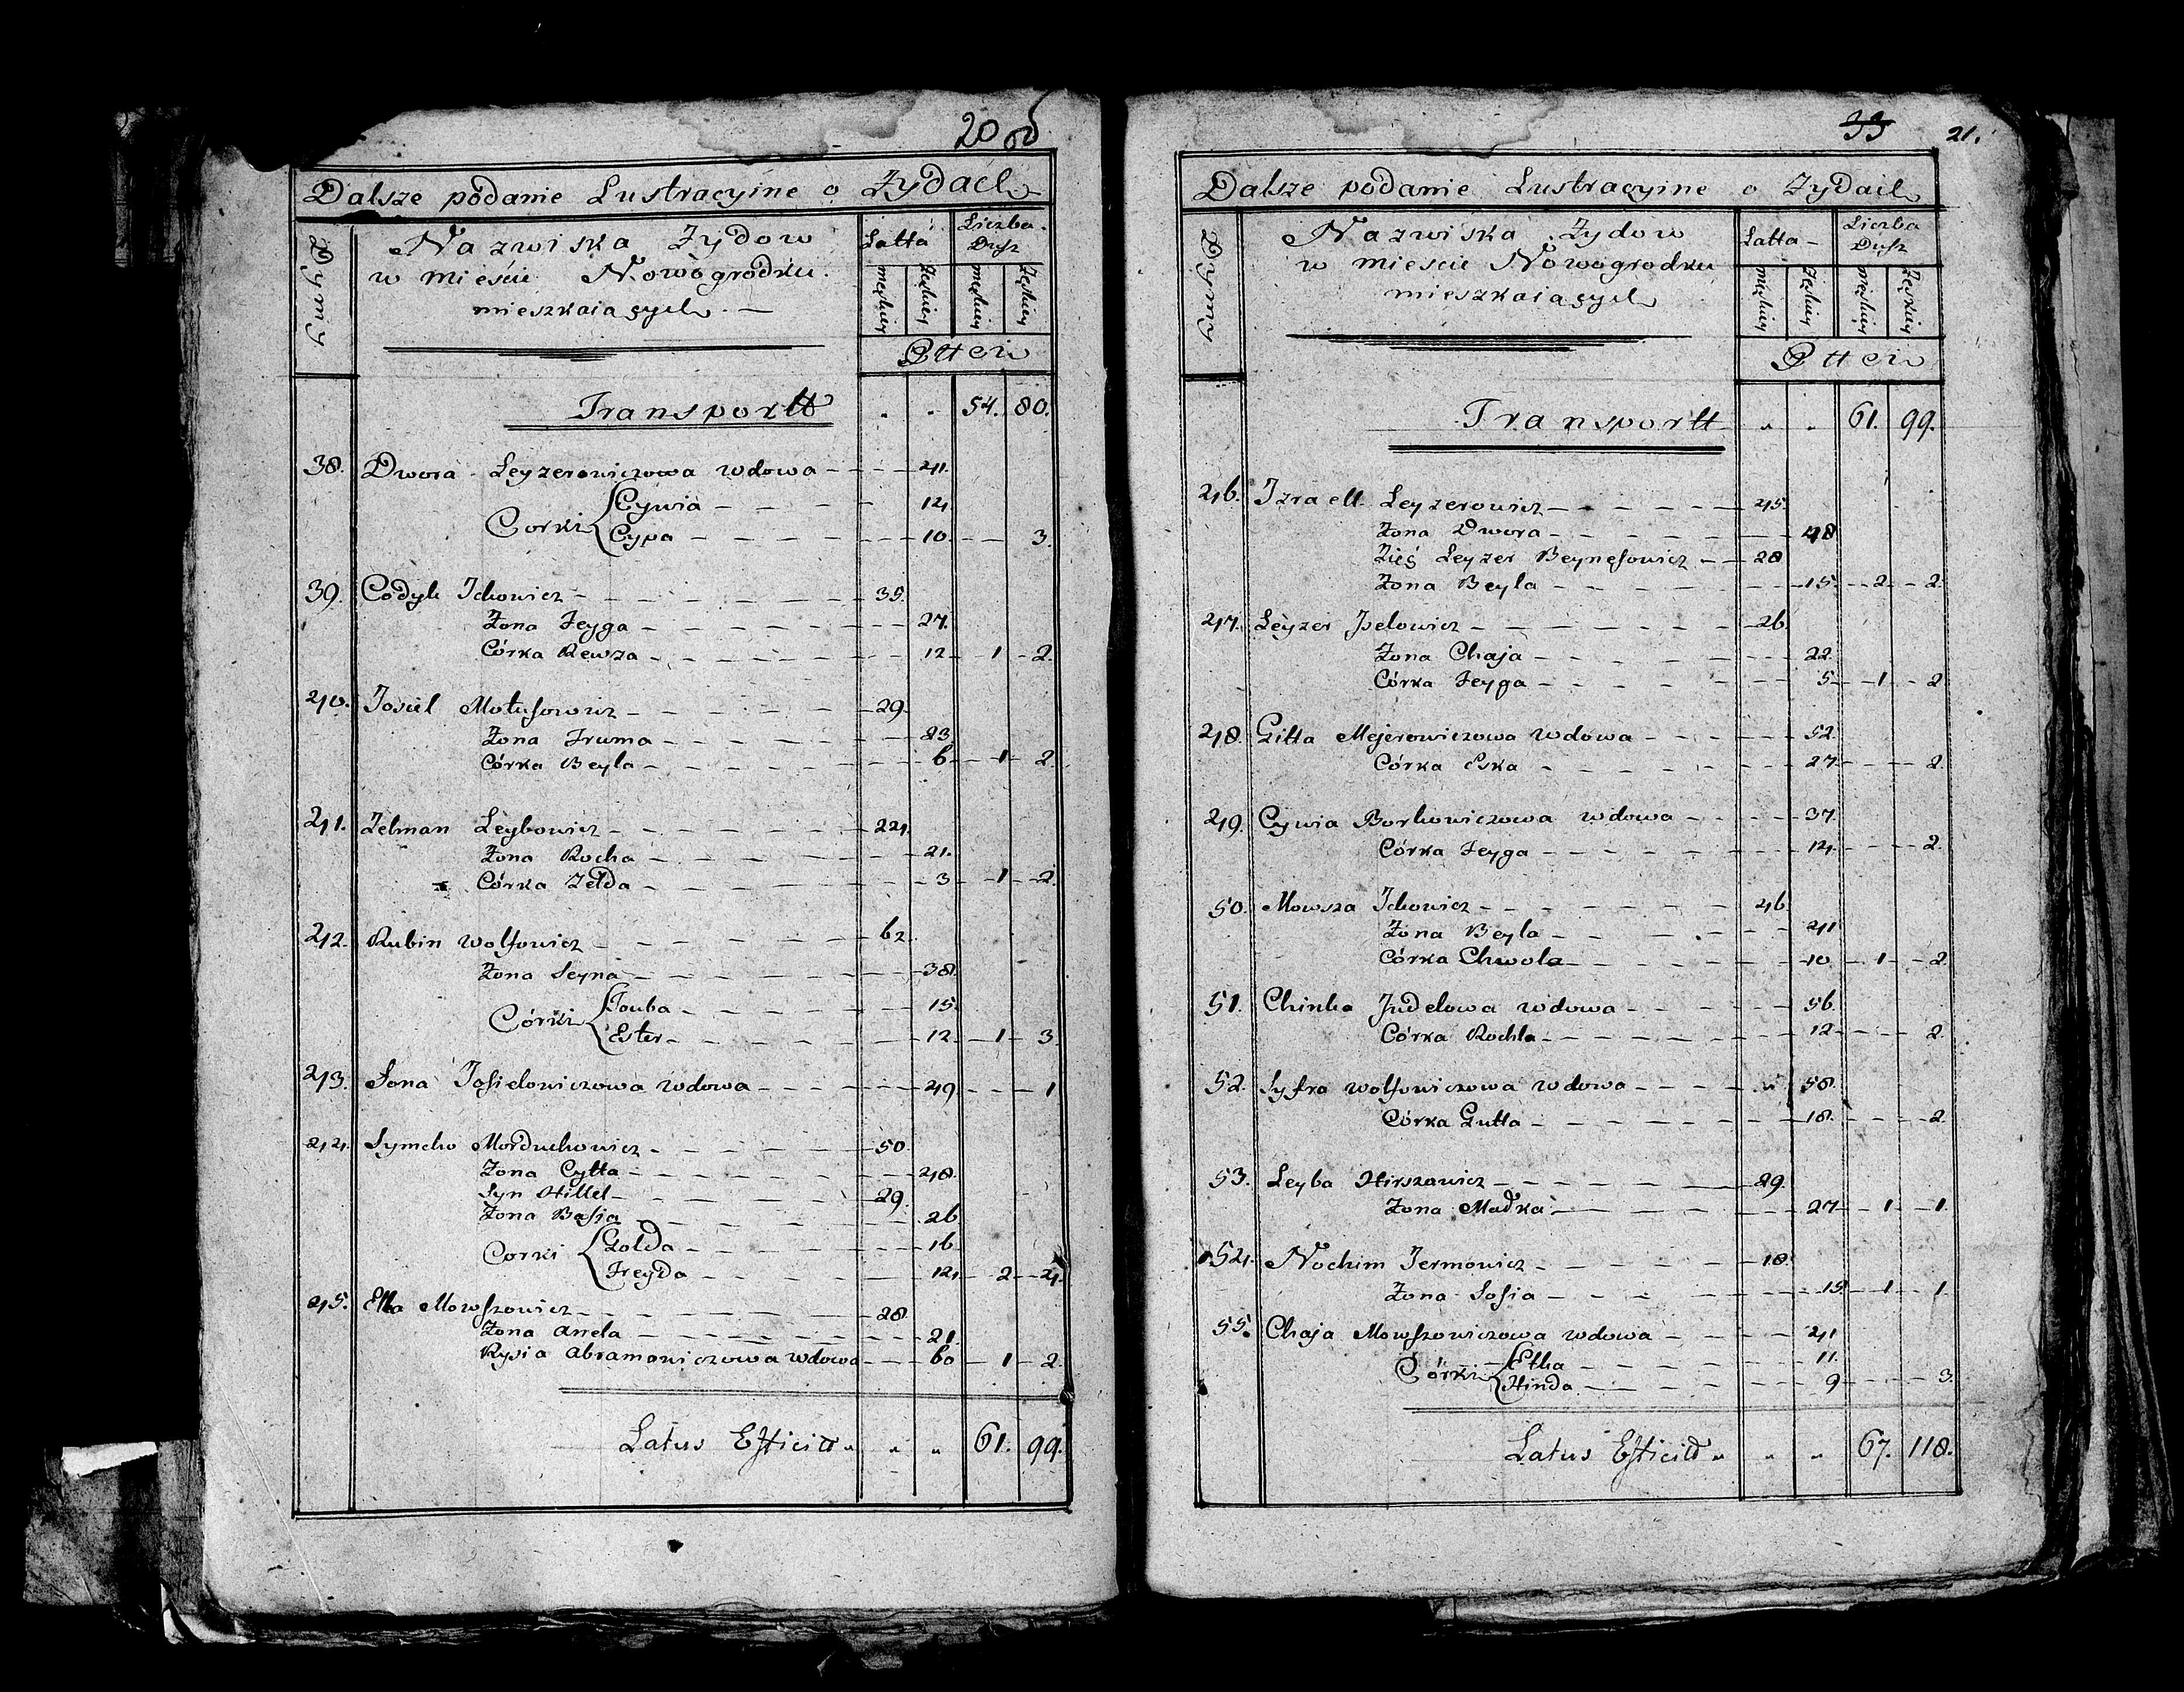 20 об
Dalsze podanie Lustracyine o Żydach
Dymy
Nazwiska Żydow
w mieście Nowogrodku
mieszkaiących
Latta
Liczba
Dusz
męskiey
Żęskiey
męskiey
Żęskiey
Ptt Ci
Transportt " " 54. 80.
38. Dwora Leyzerowiczowa wdowa 41.
Corki Cywia 14
Cypa 10. 3.
39. Codyk Ickowicz 35.
Żona Feyga 27.
Córka Rewza 12 1 2.
40. Josiel Motusowicz 29.
Żona Fruma 23
Córka Beyla 6 1 2.
41. Zelman Leybowicz 24.
Żona Rocha 21.
Córka Zelda 3 1 2.
42. Rubin Wolfowicz 62
Żona Seyna 38.
Córki Touba 15.
Ester 12 1 3.
43. Sona Josielowiczowa wdowa 49 1
44. Symcho Morduchowicz 50.
Żona Cytta 48.
Syn Hillel 29.
Żona Basia 26
Corki Golda 16
Freyda 14 2 4.
45. Ella Mowszowicz 28.
Żona Anela 21.
Rysia Abramowiczowa wdowa 60 1 2.
Latus Efficitt " " " 61. 99.
33 21.
Dalsze podanie Lustracyine o Żydach
Dymy
Nazwiska Żydow
w mieście Nowogrodku
mieszkaiących
Latta
Liczba
Dusz
męskiey
Żęskiey
męskiey
Żęskiey
Ptt Ci
Transportt " " 61. 99.
46. Izraell Leyzerowicz 45.
Żona Dwora 48
Zięć Leyzer Beynesowicz 20
Żona Beyla 15. 2 2.
47. Leyzer Joselowicz 26.
Żona Chaja 22.
Córka Feyga 5 1 2
48. Gitta Mejerowiczowa wdowa 52.
Córka Eska 27 2.
49. Cywia Borkowiczowa wdowa 37.
Córka Feyga 14 2.
50. Mowsza Ickowicz 46
Żona Beyla 41
Córka Chwola 10 1 2.
51. Chinka Judelowa wdowa 56.
Córka Rochla 12 2.
52. Syfra Wolfowiczowa wdowa " 58.
Córka Gutta 18. 2.
53. Leyba Hirszowicz 29.
Żona Madka 27 1 1.
54. Nochim Jermowicz 18.
Żona Sosia 15 1 1.
55. Chaja Mowszowiczowa wdowa 41
Córki Etka 11.
Hinda 9 3.
Latus Efficitt " " " 67. 118.